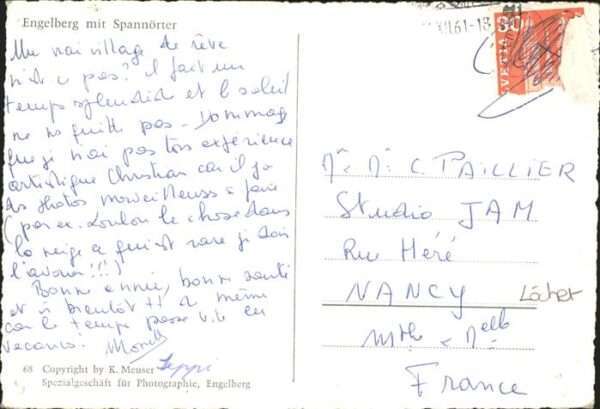 Engelberg mit Spannörter
Un vrai village de rêve
n'est ce pas? il fait un
temps splendide et le soleil
ne ns quitte pas. Dommage
que je n'ai pas ton expérience
artistique Christian car il y a
des photos merveilleuses à faire
(par ex. Loulou le chose dans
la neige ce qui est rare je dois
l'avouer!!!)
Bonne année, bonne santé
et à bientôt tt de même
car le temps passe vite en
vacances.
68 Copyright by K. Meuser
Spezialgeschäft für Photographie, Engelberg
61-18
HELVETIA
Mr. Me C. PAILLIER
Studio JAM
Rue Héré
NANCY
Mthe Melle
France